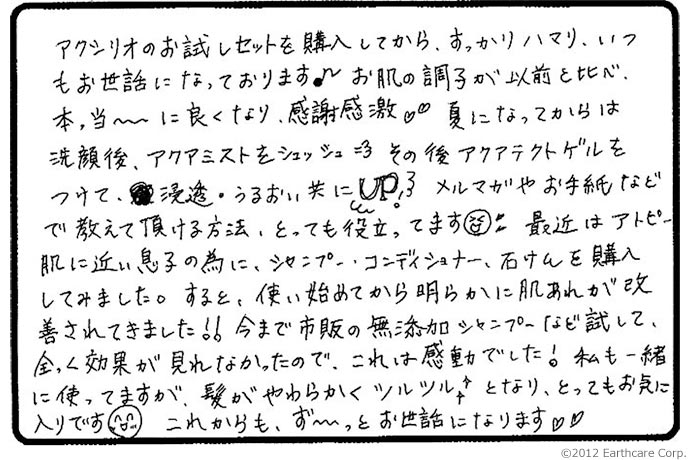 アクシリオのお試しセットを購入してから、すっかりハマリ、いつ
もお世話になっております♪ お肌の調子が以前と比べ、
本当〜〜に良くなり、感謝感激♡♡ 夏になってからは
洗顔後、アクアミストをシュッシュ=3 その後アクアテクトゲルを
つけて、浸透・うるおい共にUP!3 メルマガやお手紙など
で教えて頂ける方法、とっても役立ってます 最近はアトピー
肌に近い息子の為に、シャンプー・コンディショナー、石けんを購入
してみました。すると、使い始めてから明らかに肌あれが改
善されてきました!! 今まで市販の無添加シャンプーなど試して、
全っく効果が見れなかったので、これは感動でした! 私も一緒
に使ってますが、髪がやわらかくツルツル↑↑となり、とってもお気に
入りです これからも、ず〜〜っとお世話になります♡♡
©2012 Earthcare Corp.